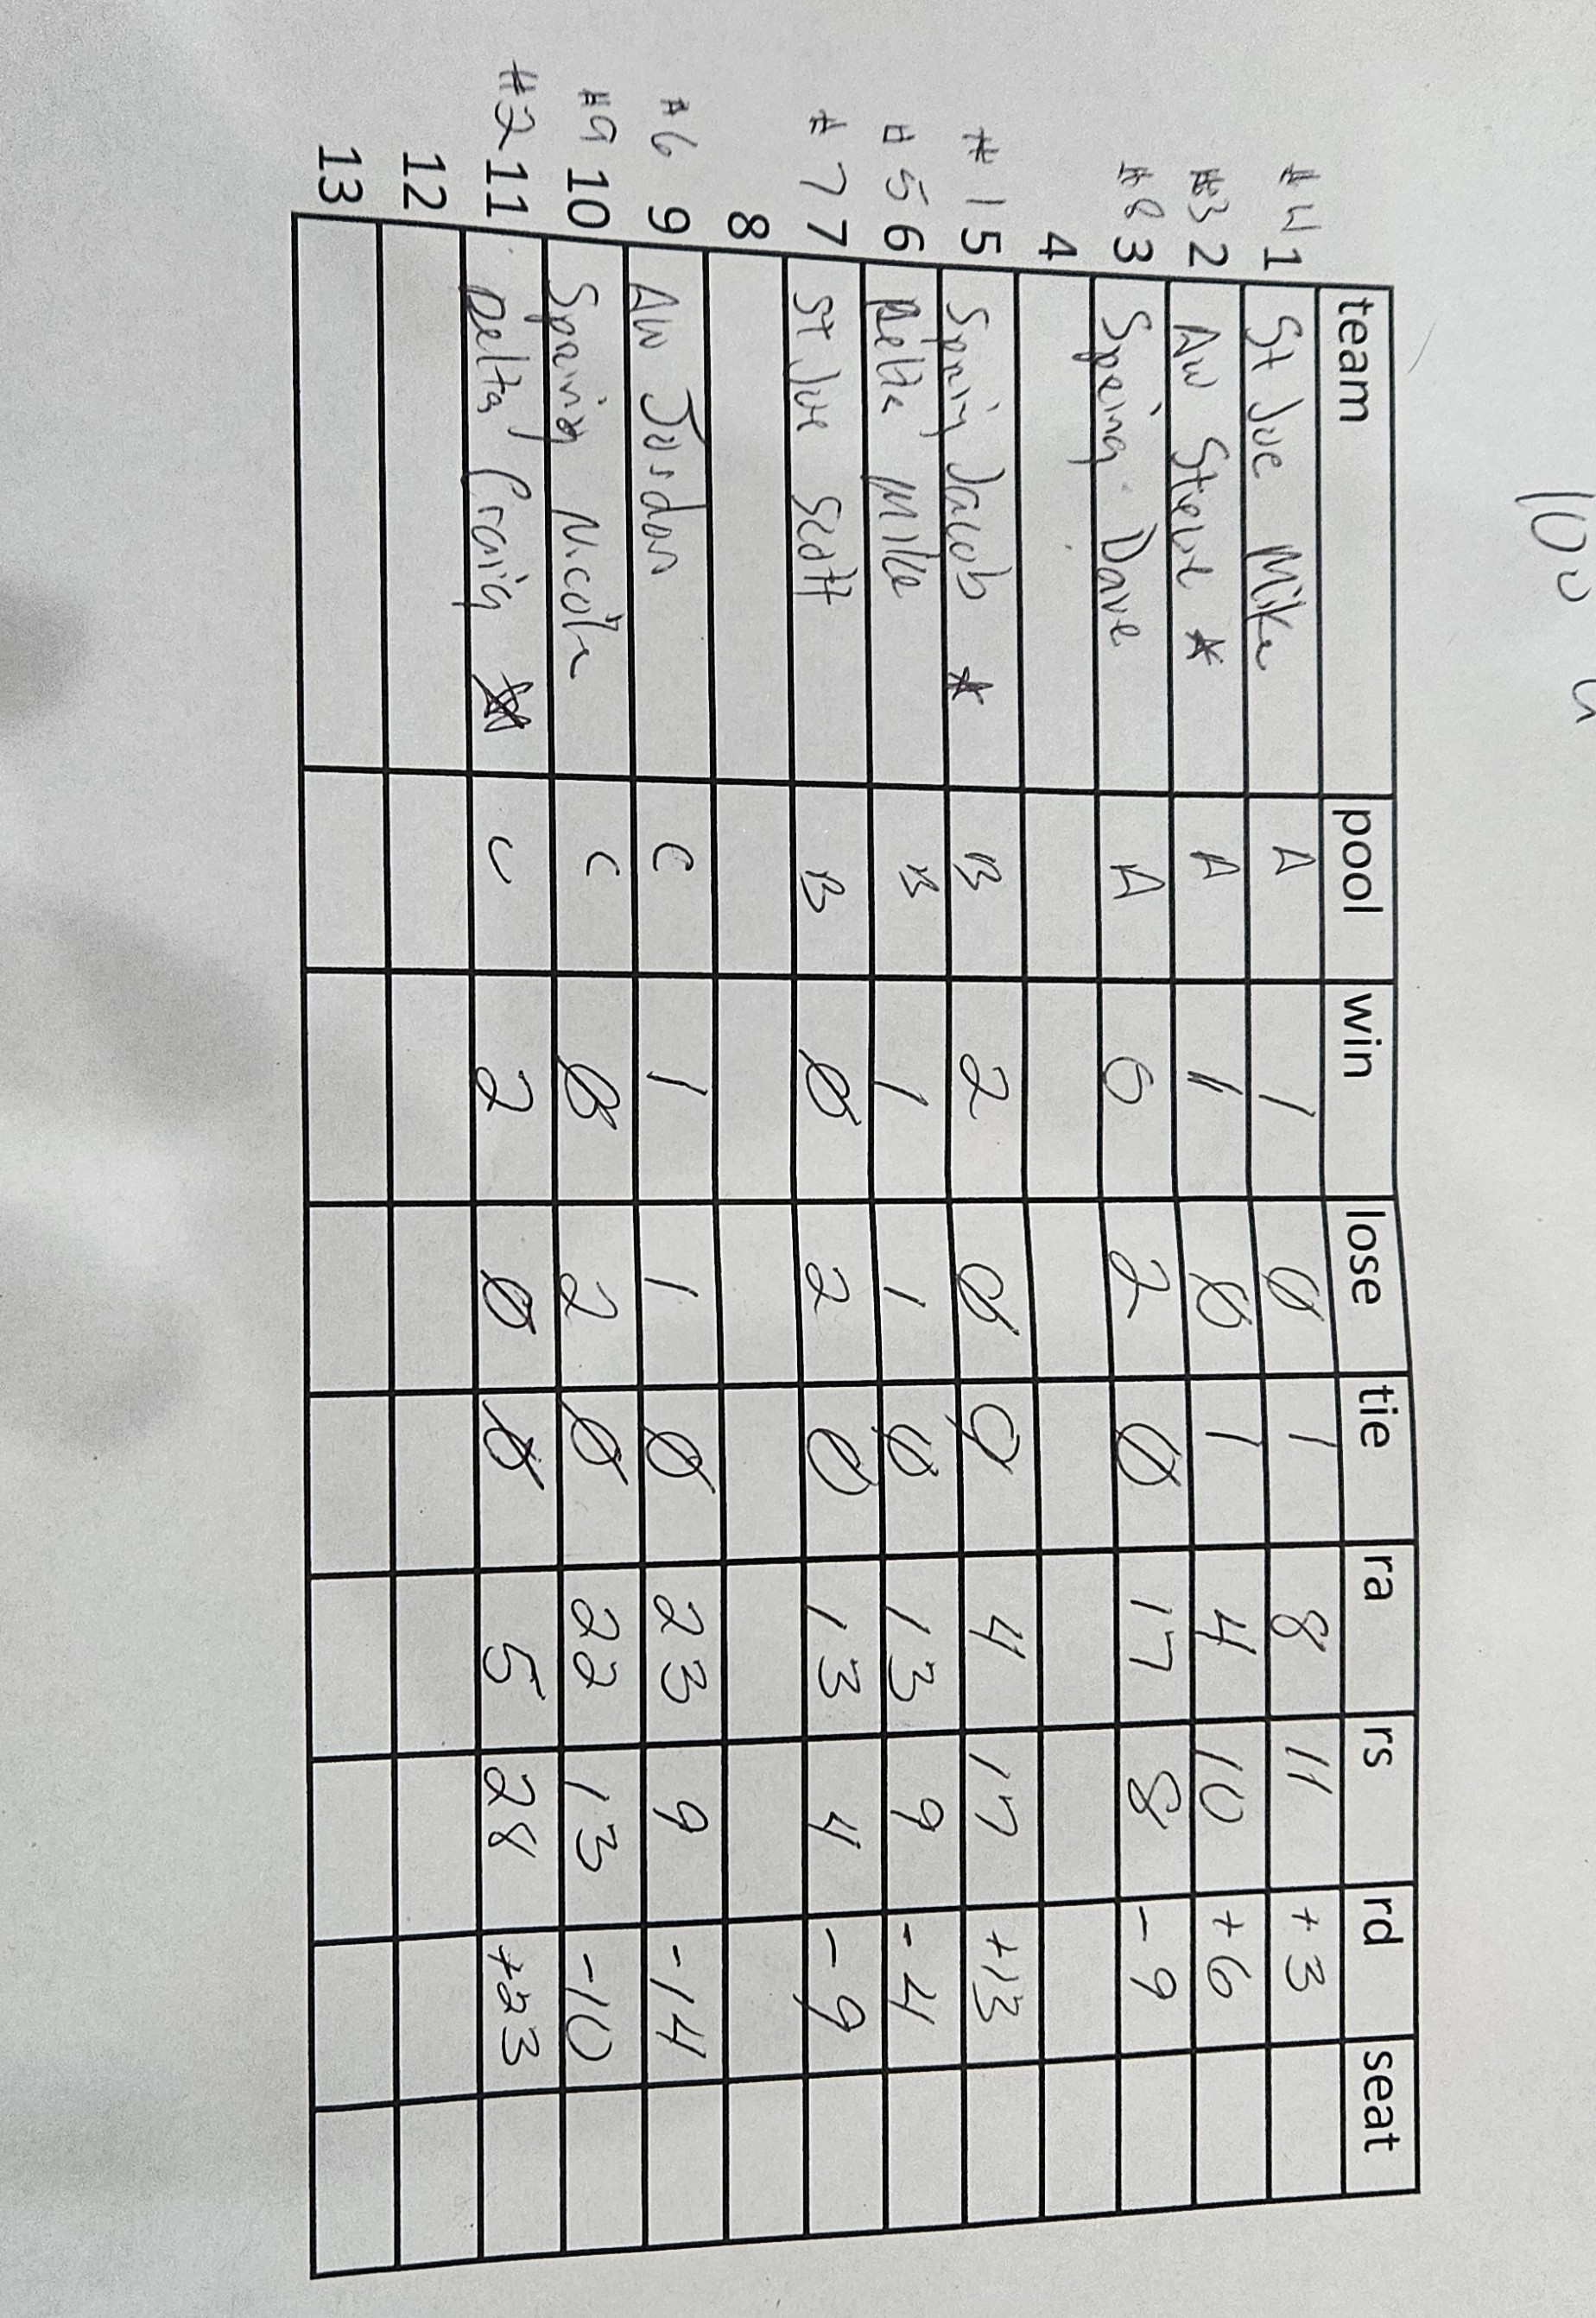 team pool win lose tie ra rs rd seat
#4 1 St Joe Mike A 1 0 1 8 11 +3
#3 2 AW Steve * A 1 0 1 4 10 +6
#8 3 Speing Dave A 0 2 0 17 8 -9
4
#1 5 Spring Jacob * B 2 0 0 4 17 +13
#5 6 Delta Mike B 1 1 0 13 9 -4
#7 7 St Joe Scott B 0 2 0 13 4 -9
8
#6 9 AW Jordan C 1 1 0 23 9 -14
#9 10 Spring Nicole C 0 2 0 22 13 -10
#2 11 Delta Craig * C 2 0 0 5 28 +23
12
13